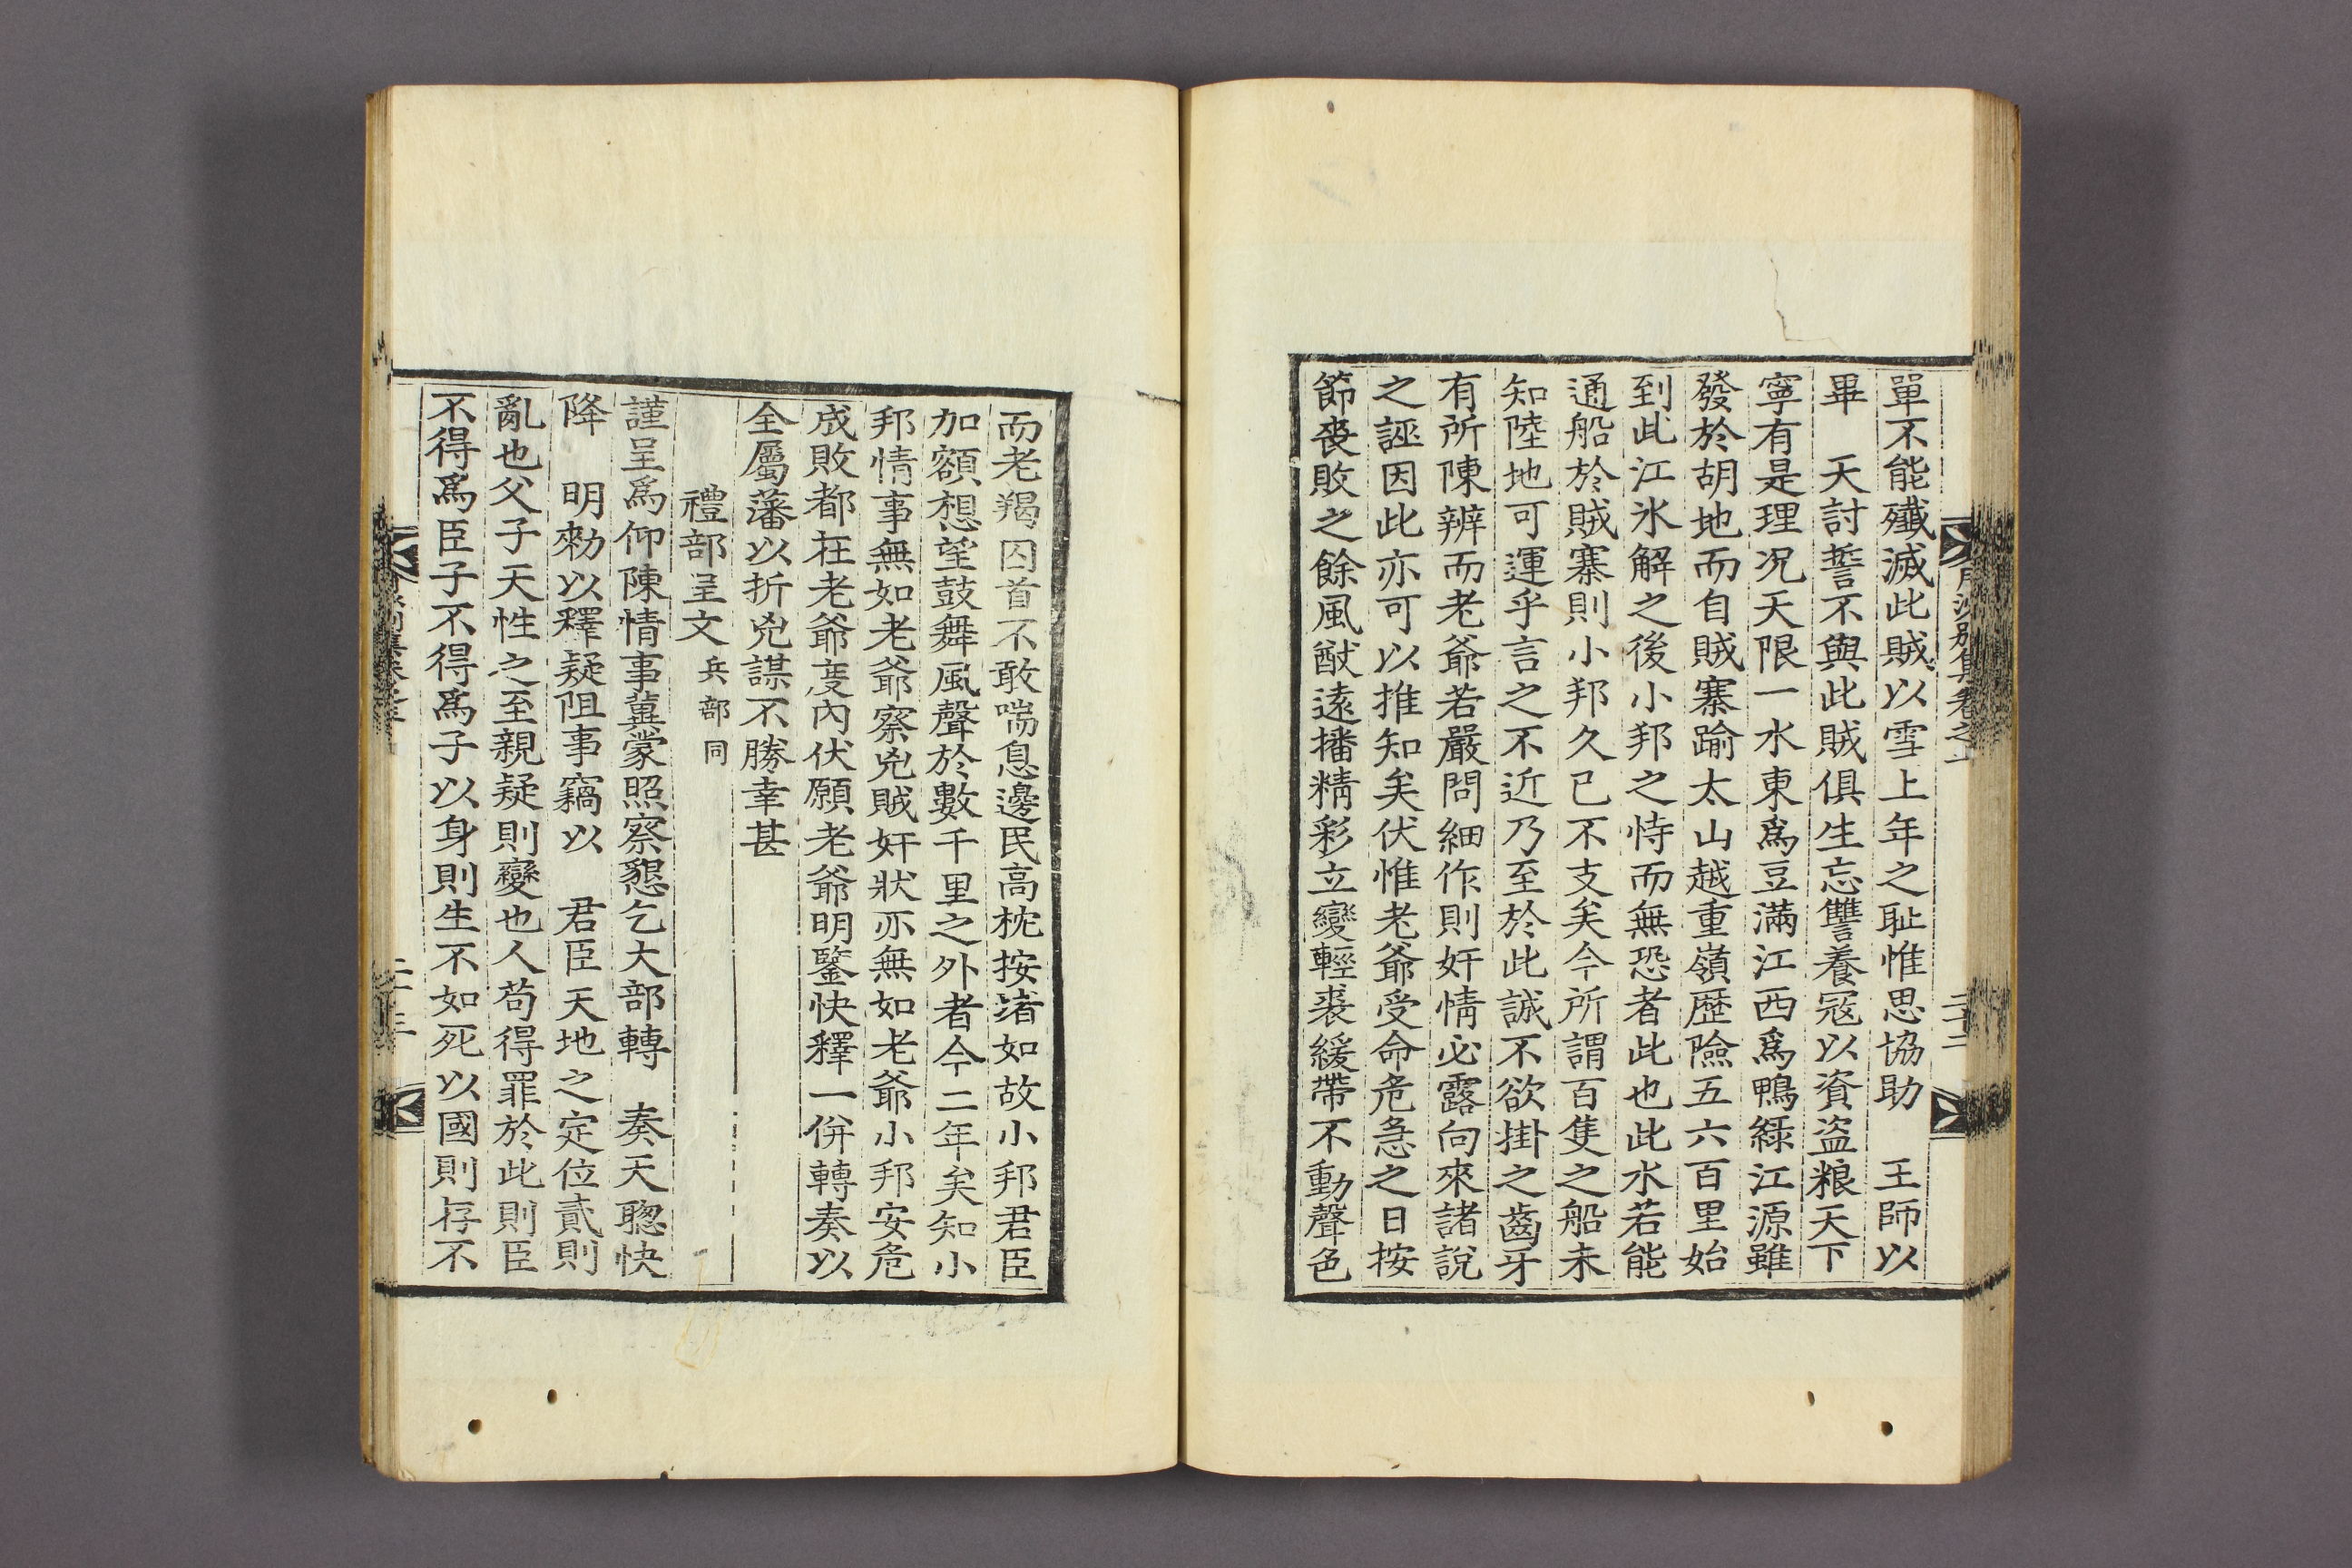 單不能殲滅此賊以雪上年之耻惟思協助 王師以
畢 天討誓不與此賊俱生忘讐養冦以資盗粮天下
寧有是理况天限一水東爲豆滿江西爲鴨緑江源雖
發於胡地而自賊寨踰太山越重嶺歷險五六百里始
到此江氷解之後小邦之恃而無恐者此也此水若能
通船於賊寨則小邦久已不支矣今所謂百隻之船未
知陸地可運乎言之不近乃至於此誠不欲掛之齒牙
有所陳辨而老爺若嚴問細作則奸情必露向來諸說
之誣因此亦可以推知矣伏惟老爺受命危急之日按
節喪敗之餘風猷遠播精彩立變輕裘緩帶不動聲色
而老羯囚首不敢喘息邊民高枕按堵如故小邦君臣
加額想望鼓舞風聲於數千里之外者今二年矣知小
邦情事無如老爺察兇賊奸狀亦無如老爺小邦安危
成敗都在老爺度內伏願老爺明鑒快釋一併轉奏以
全屬藩以折兇謀不勝幸甚
禮部呈文 兵部同
謹呈爲仰陳情事冀蒙照察懇乞大部轉 奏天聦快
降 明勑以釋疑阻事竊以 君臣天地之定位貳則
亂也父子天性之至親疑則變也人苟得罪於此則臣
不得爲臣子不得爲子以身則生不如死以國則存不